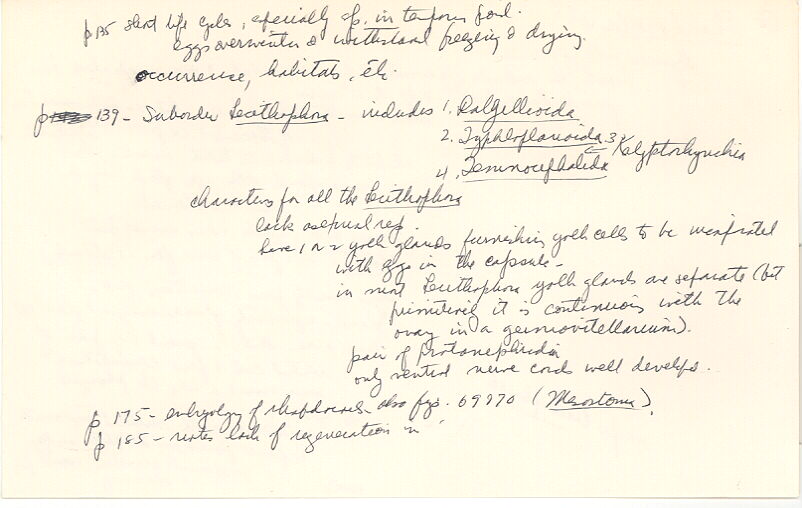 p 135 short life cycles, especially sp. in temporary pond.
eggs overwinter & withstand freezing & drying.
occurrence, habitats, etc.
p 139 - Suborder Lecithophora - includes 1. Dalyellioida
2. Typhloplanoida 3. Kalyptorhynchia
4. Temnocephalida
characters for all the Lecithophora
lack asexual rep.
have 1 or 2 yolk glands furnishing yolk cells to be incorporated
with eggs in the capsule -
in most Lecithophora yolk glands are separate (but
primitively it is continuous with the
ovary in a germovitellarium).
pair of protonephridia
only ventral nerve cords well develops.
p 175 - embryology of rhabdocoels - also figs. 69 & 70 (Mesostoma).
p 185 - notes lack of regeneration in "